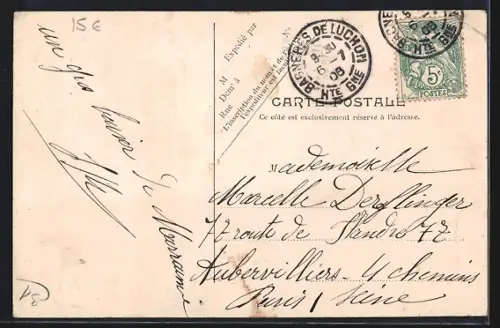 15€
un gros baiser de Marraine
Expédié par
M
Demt à
Rue
L'inscription du nom et de
l'expéditeur est
BAGNÈRES DE LUCHON
8-30
6-7
06
HTE GNE
BAGNÈ
HTE GNE
5c
POSTES
CARTE POSTALE
Ce côté est exclusivement réservé à l'adresse.
Mademoiselle
Marcelle Derflinger
72 route de Flandre 72
Aubervilliers - 4 chemins
Paris / Seine